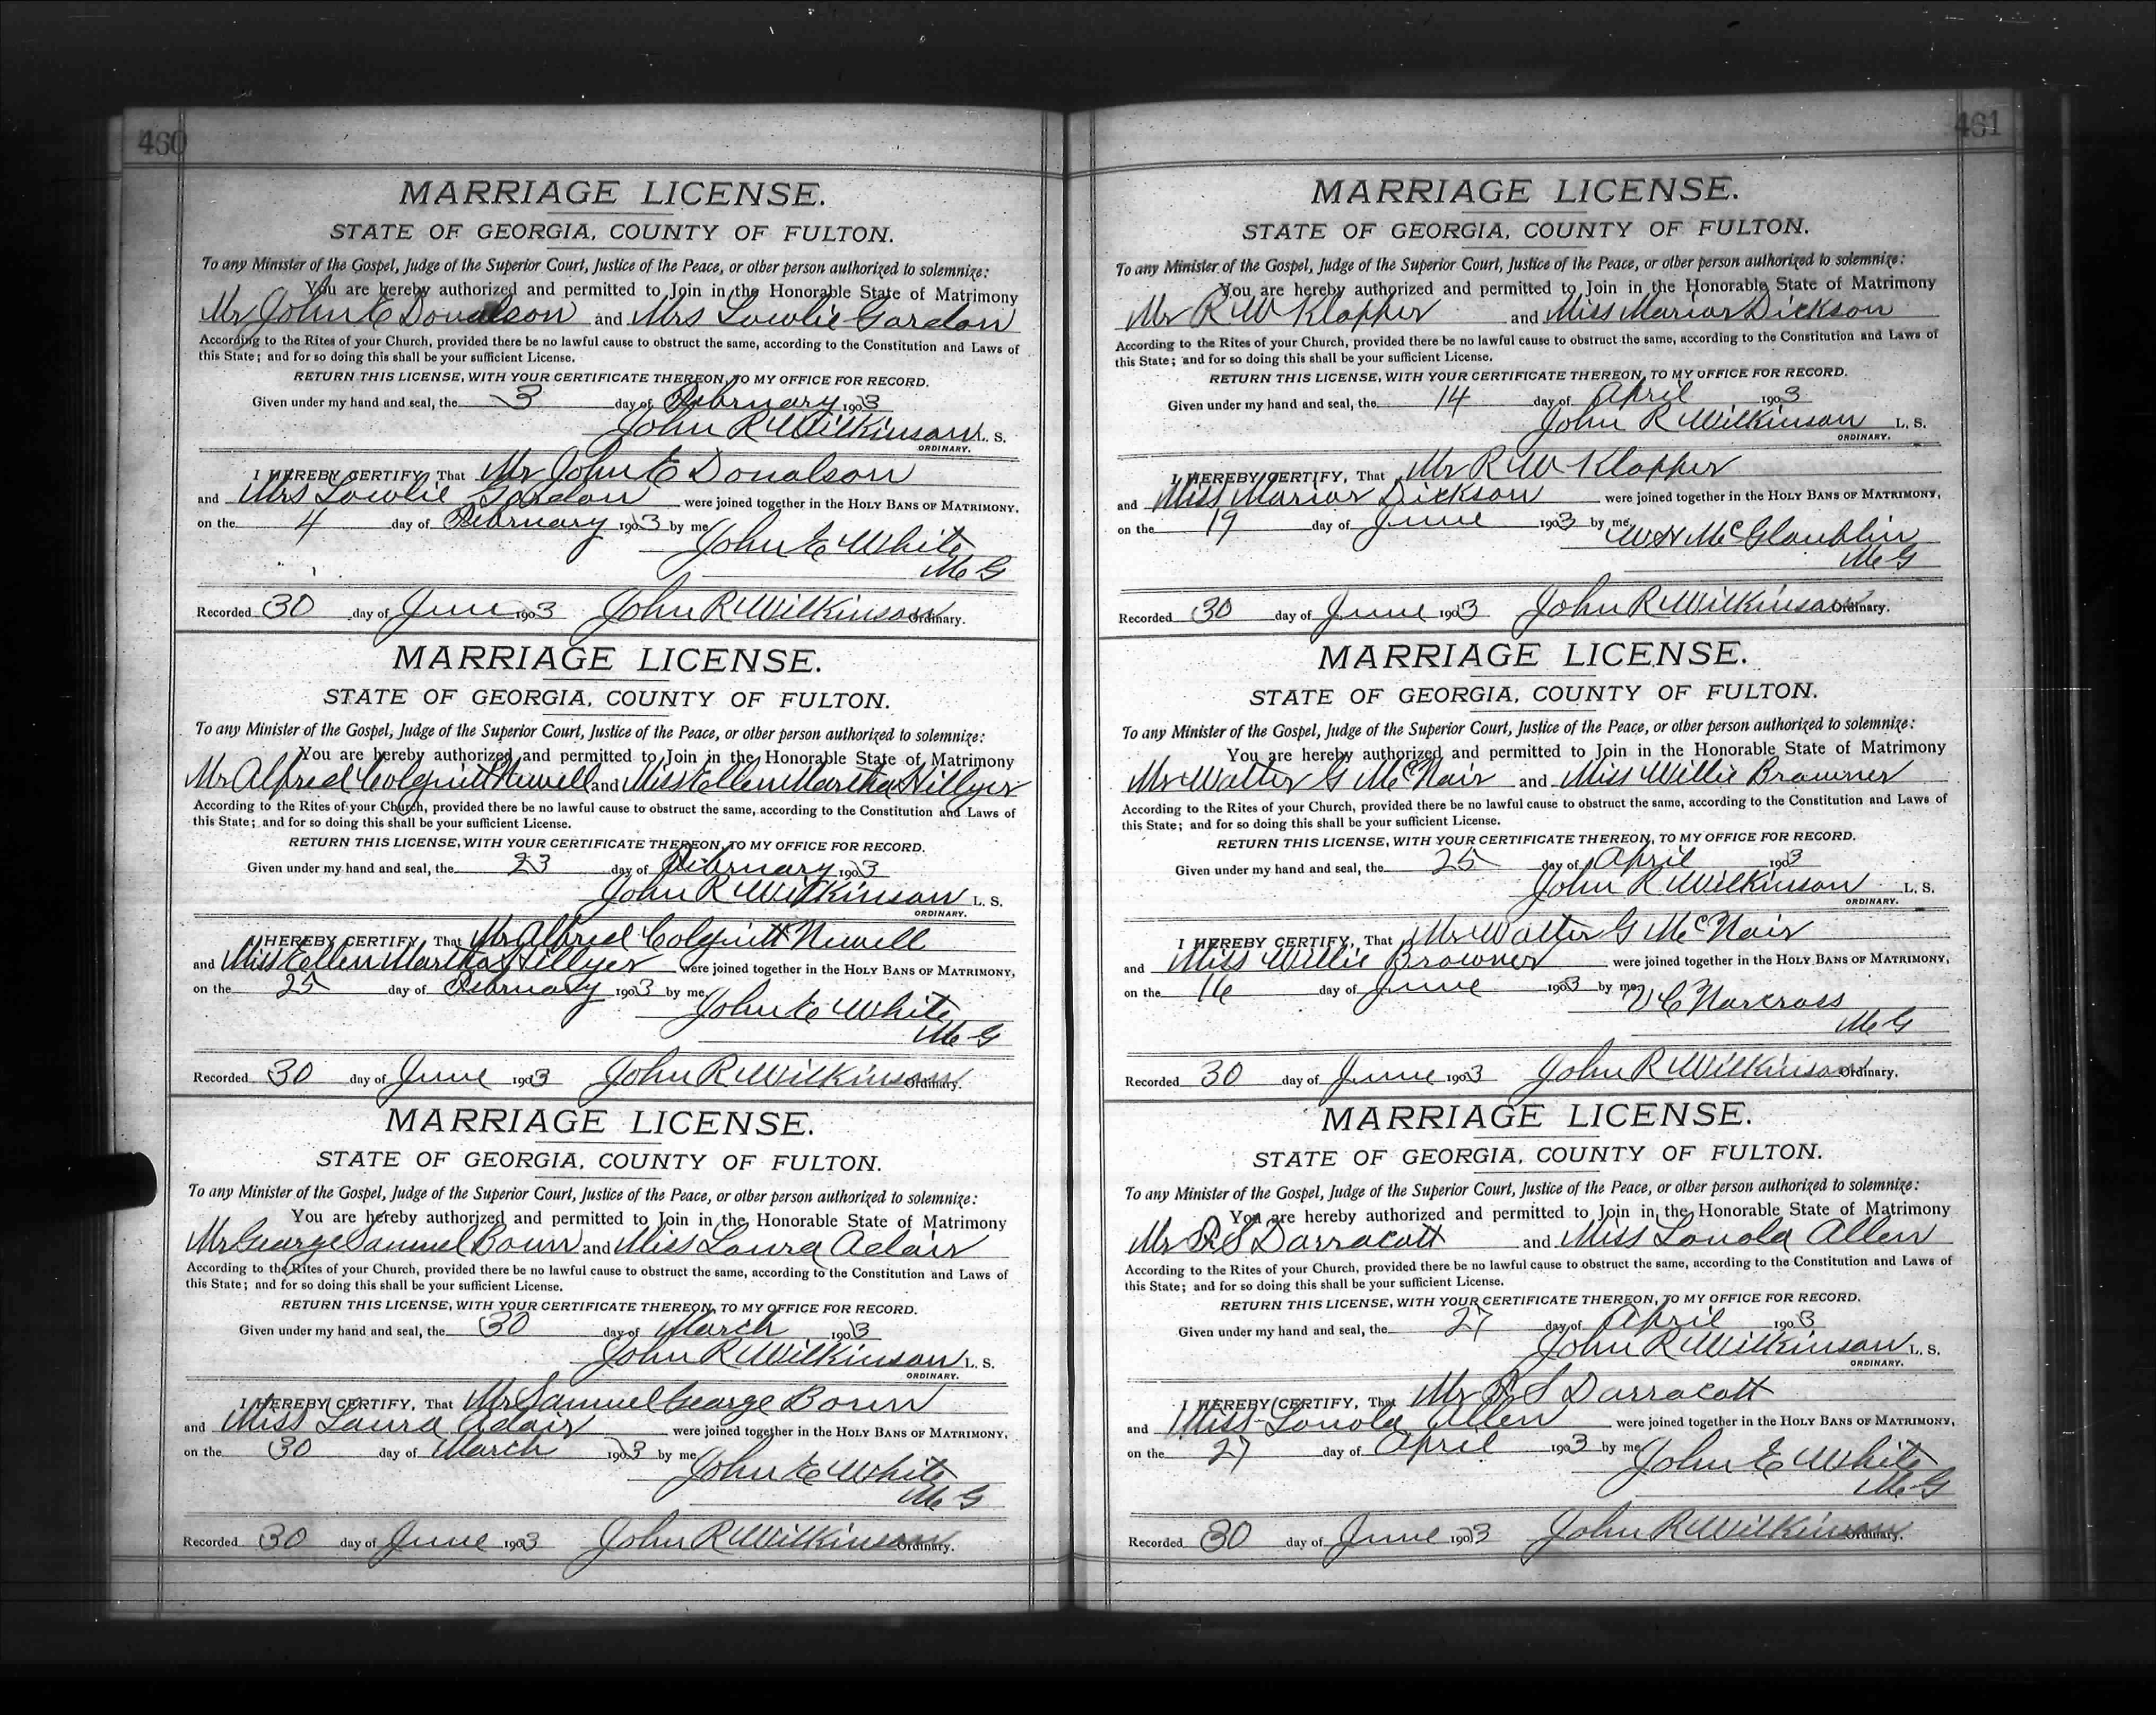 460
MARRIAGE LICENSE.
STATE OF GEORGIA, COUNTY OF FULTON.
To any Minister of the Gospel, Judge of the Superior Court, Justice of the Peace, or other person authorized to solemnize:
You are hereby authorized and permitted to Join in the Honorable State of Matrimony
Mr John E Donalson and Mrs Lowlie Gordon
According to the Rites of your Church, provided there be no lawful cause to obstruct the same, according to the Constitution and Laws of
this State; and for so doing this shall be your sufficient License.
RETURN THIS LICENSE, WITH YOUR CERTIFICATE THEREON, TO MY OFFICE FOR RECORD.
Given under my hand and seal, the 3 day of February 1903
John R Wilkinson L. S.
ORDINARY.
I HEREBY CERTIFY, That Mr John E Donalson
and Mrs Lowlie Gordon were joined together in the HOLY BANS OF MATRIMONY,
on the 4 day of February 1903 by me
John E White
M G
Recorded 30 day of June 1903 John R Wilkinson Ordinary.
MARRIAGE LICENSE.
STATE OF GEORGIA, COUNTY OF FULTON.
To any Minister of the Gospel, Judge of the Superior Court, Justice of the Peace, or other person authorized to solemnize:
You are hereby authorized and permitted to Join in the Honorable State of Matrimony
Mr Alfred Colquitt Newell and Miss Ellen Martha Hillyer
According to the Rites of your Church, provided there be no lawful cause to obstruct the same, according to the Constitution and Laws of
this State; and for so doing this shall be your sufficient License.
RETURN THIS LICENSE, WITH YOUR CERTIFICATE THEREON, TO MY OFFICE FOR RECORD.
Given under my hand and seal, the 23 day of February 1903
John R Wilkinson L. S.
ORDINARY.
I HEREBY CERTIFY, That Mr Alfred Colquitt Newell
and Miss Ellen Martha Hillyer were joined together in the HOLY BANS OF MATRIMONY,
on the 25 day of February 1903 by me
John E White
M G
Recorded 30 day of June 1903 John R Wilkinson Ordinary.
MARRIAGE LICENSE.
STATE OF GEORGIA, COUNTY OF FULTON.
To any Minister of the Gospel, Judge of the Superior Court, Justice of the Peace, or other person authorized to solemnize:
You are hereby authorized and permitted to Join in the Honorable State of Matrimony
Mr George Samuel Bown and Miss Laura Adair
According to the Rites of your Church, provided there be no lawful cause to obstruct the same, according to the Constitution and Laws of
this State; and for so doing this shall be your sufficient License.
RETURN THIS LICENSE, WITH YOUR CERTIFICATE THEREON, TO MY OFFICE FOR RECORD.
Given under my hand and seal, the 30 day of March 1903
John R Wilkinson L. S.
ORDINARY.
I HEREBY CERTIFY, That Mr Samuel George Bown
and Miss Laura Adair were joined together in the HOLY BANS OF MATRIMONY,
on the 30 day of March 1903 by me
John E White
M G
Recorded 30 day of June 1903 John R Wilkinson Ordinary.
461
MARRIAGE LICENSE.
STATE OF GEORGIA, COUNTY OF FULTON.
To any Minister of the Gospel, Judge of the Superior Court, Justice of the Peace, or other person authorized to solemnize:
You are hereby authorized and permitted to Join in the Honorable State of Matrimony
Mr R W Klapper and Miss Marior Dickson
According to the Rites of your Church, provided there be no lawful cause to obstruct the same, according to the Constitution and Laws of
this State; and for so doing this shall be your sufficient License.
RETURN THIS LICENSE, WITH YOUR CERTIFICATE THEREON, TO MY OFFICE FOR RECORD.
Given under my hand and seal, the 14 day of April 1903
John R Wilkinson L. S.
ORDINARY.
I HEREBY CERTIFY, That Mr R W Klapper
and Miss Marior Dickson were joined together in the HOLY BANS OF MATRIMONY,
on the 19 day of June 1903 by me
W H McGlauhlin
M G
Recorded 30 day of June 1903 John R Wilkinson Ordinary.
MARRIAGE LICENSE.
STATE OF GEORGIA, COUNTY OF FULTON.
To any Minister of the Gospel, Judge of the Superior Court, Justice of the Peace, or other person authorized to solemnize:
You are hereby authorized and permitted to Join in the Honorable State of Matrimony
Mr Walter G McNair and Miss Willie Browner
According to the Rites of your Church, provided there be no lawful cause to obstruct the same, according to the Constitution and Laws of
this State; and for so doing this shall be your sufficient License.
RETURN THIS LICENSE, WITH YOUR CERTIFICATE THEREON, TO MY OFFICE FOR RECORD.
Given under my hand and seal, the 25 day of April 1903
John R Wilkinson L. S.
ORDINARY.
I HEREBY CERTIFY, That Mr Walter G McNair
and Miss Willie Browner were joined together in the HOLY BANS OF MATRIMONY,
on the 16 day of June 1903 by me
V C Norcross
M G
Recorded 30 day of June 1903 John R Wilkinson Ordinary.
MARRIAGE LICENSE.
STATE OF GEORGIA, COUNTY OF FULTON.
To any Minister of the Gospel, Judge of the Superior Court, Justice of the Peace, or other person authorized to solemnize:
You are hereby authorized and permitted to Join in the Honorable State of Matrimony
Mr R S Darracott and Miss Lonola Allen
According to the Rites of your Church, provided there be no lawful cause to obstruct the same, according to the Constitution and Laws of
this State; and for so doing this shall be your sufficient License.
RETURN THIS LICENSE, WITH YOUR CERTIFICATE THEREON, TO MY OFFICE FOR RECORD.
Given under my hand and seal, the 27 day of April 1903
John R Wilkinson L. S.
ORDINARY.
I HEREBY CERTIFY, That Mr R S Darracott
and Miss Lonola Allen were joined together in the HOLY BANS OF MATRIMONY,
on the 27 day of April 1903 by me
John E White
M G
Recorded 30 day of June 1903 John R Wilkinson Ordinary.